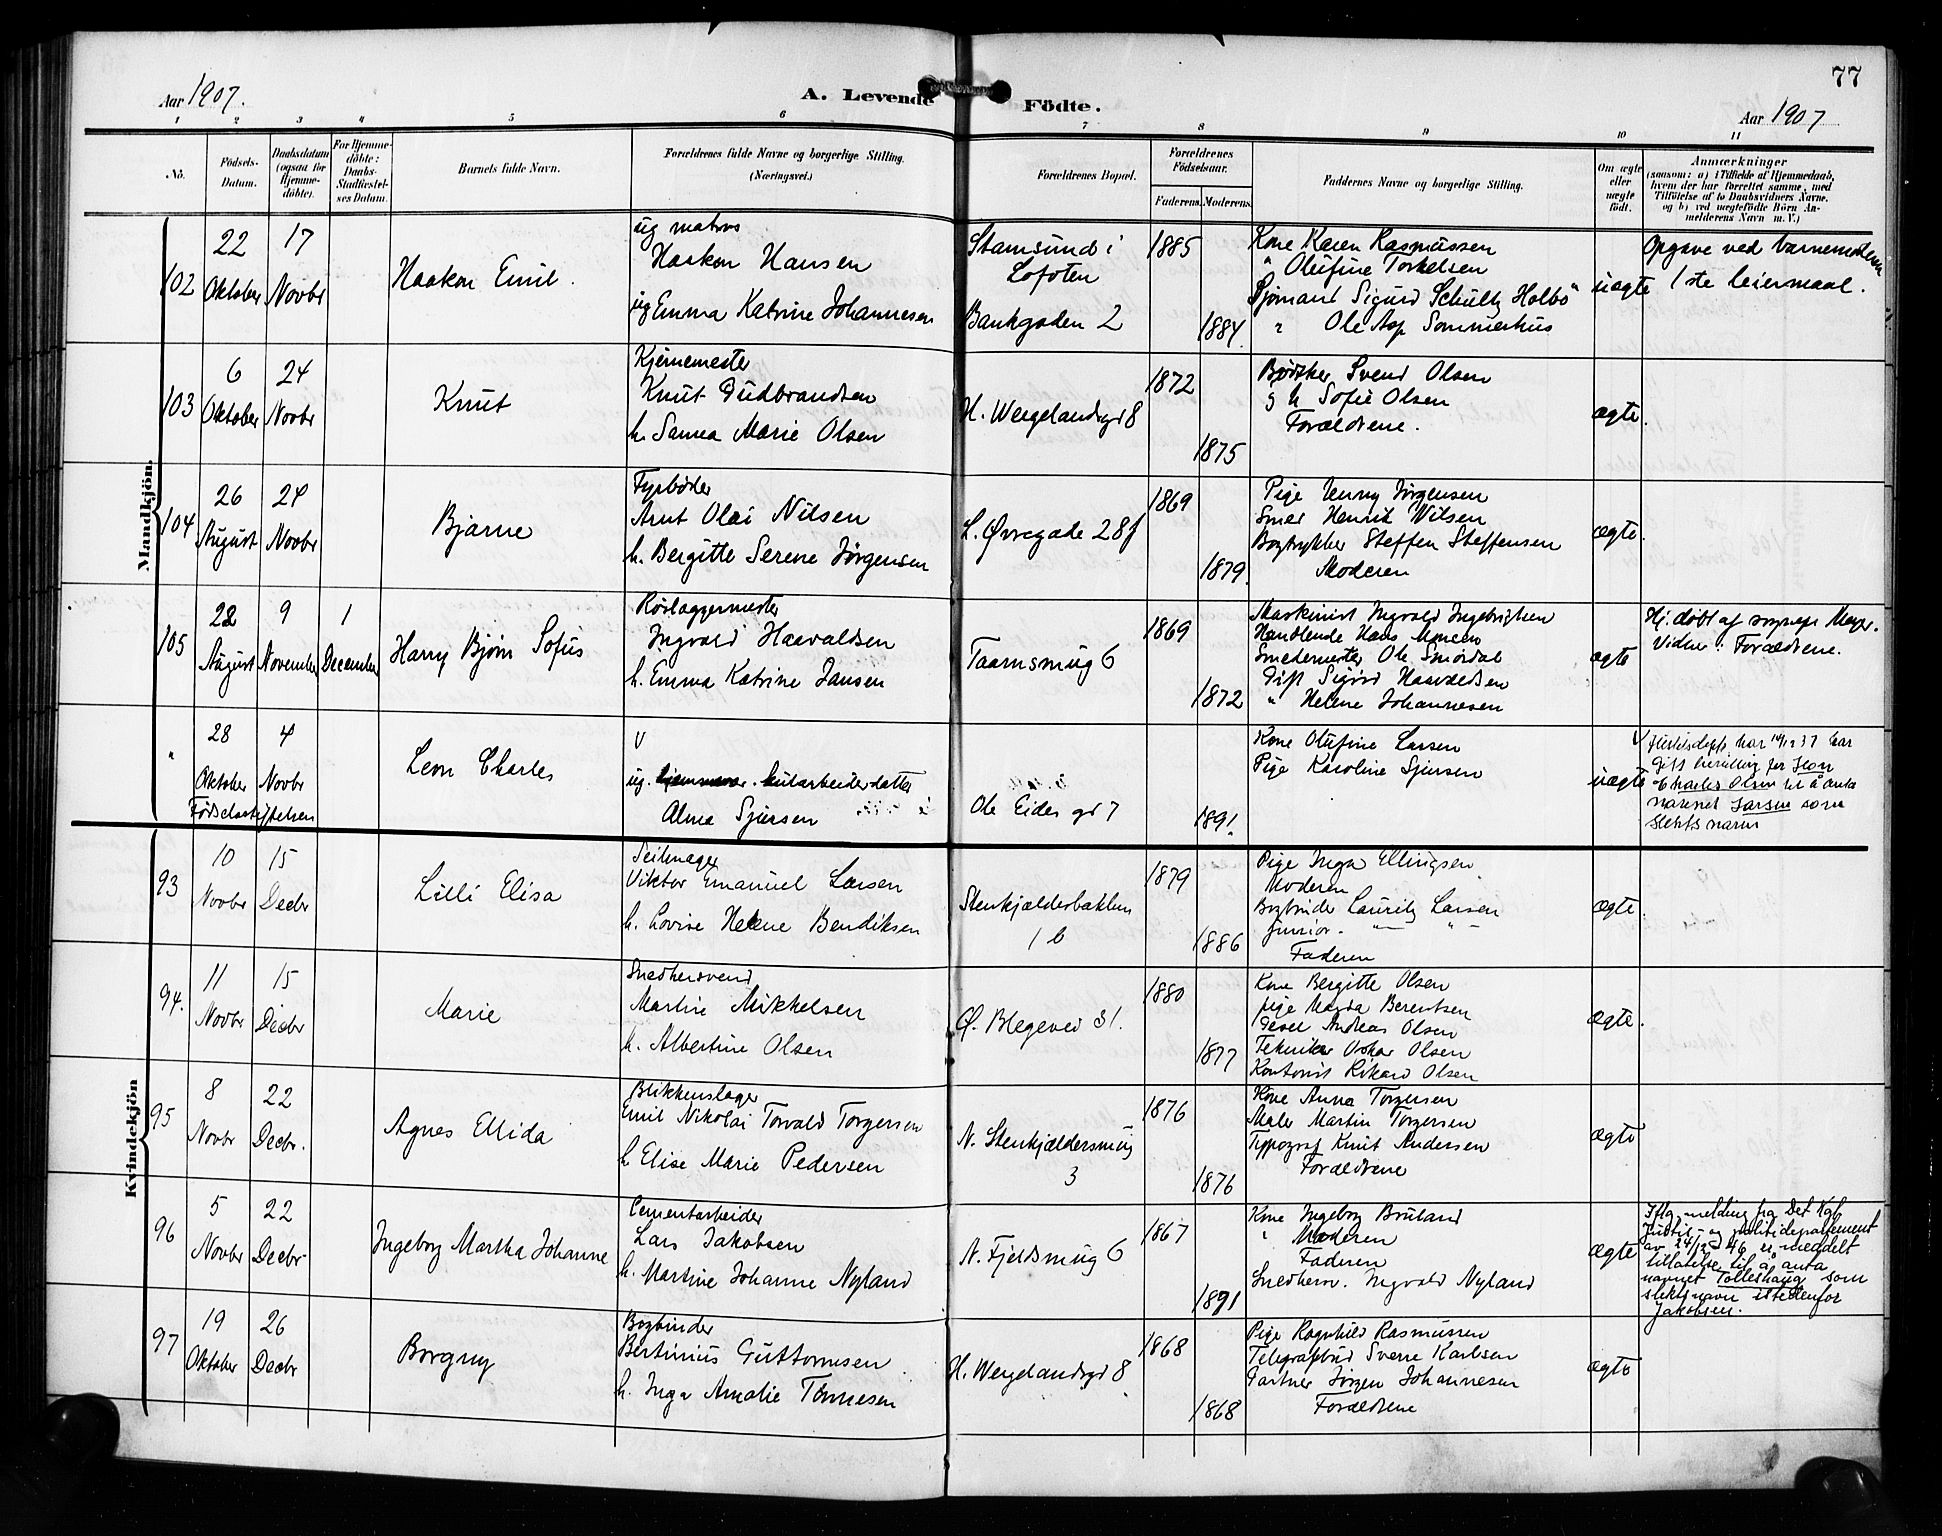 77
Aar 1907.
A. Levende Födte.
Aar 1907
1 2 3 4 5 6 7 8 9 10 11
No.
Födsels-Datum.
Daabsdatum (ogsaa for Hjemme-döbte).
For Hjemme-döbte: Daabs-Stadfæstel-ses Datum.
Barnets fulde Navn.
Forældrenes fulde Navne og borgerlige Stilling.
(Næringsvei.)
Forældrenes Bopæl.
Forældrenes Födselsaar.
Faderens. Moderens.
Faddernes Navne og borgerlige Stilling.
Om ægte eller uægte födt.
Anmærkninger
(saasom: a) i Tilfælde af Hjemmedaab,
hvem der har forrettet samme, med
Tilföielse af to Daabsvidners Navne.
og b) ved uægtefödte Börn An-
melderens Navn m. V.)
Mandkjön.
102
22 Oktober
17 Novbr
Haakon Emil.
ug matros
Haakon Hansen
ug Emma Katrine Johannesen
Stamsund i
Lofoten
Bankgaden 2
1885
1884.
Kone Karen Rasmussen
" Olufine Torkelsen
Sjömand Sigurd Schultz Holbö
" Ole Asp Sommerhus
uægte
Opgave ved barnemoderen
1ste leiermaal.
103
6 Oktober
24 Novbr
Knut
Kjernemester
Knut Gudbrandsen
h. Sanna Marie Olsen
H. Wergelandsgd 8
1872
1875
Bödker Svend Olsen
g h Sofie Olsen
Forældrene.
ægte.
104
26 August
24 Novbr
Bjarne
Fyrböder
Arnt Olai Nilsen
h. Bergitte Serene Jørgensen
L. Øvregade 28f
1869
1879.
Pige Jenny Jørgensen
Smed Henrik Wilsen
Bogtrykker Steffen Steffensen
Moderen
ægte.
105
22 August
9 November
1 December
Harry Bjørn Sofus
Rörlæggermester
Ingvald Haavaldsen
h. Emma Katrine Jansen
Taarnsmug 6
1869
1872
Maskinist Ingvald Ingebrigtsen
Handlende Hans Monsen
Smedemester Ole Smördal
Gift Sigrid Haavaldsen
" Helene Johannesen
ægte
Hj. döbt af sognepr Meyer.
Vidner: Forældrene.
"
28 Oktober
4 Novbr
Födselsstiftelsen
Leon Charles
V
ug. datter
Alma Sjursen
Ole Eides gd 7
1891.
Kone Olufine Larsen
Pige Karoline Sjursen
uægte
V Justitsdept. har 14/12 37
gitt bevilling for Leon
Charles Olsen til å anta
navnet Larsen som
slektsnavn
Kvindekjön
93
10 Novbr
15 Decbr
Lilli Elisa
Seilmager
Viktor Emanuel Larsen
h. Lovise Helene Bendiksen
Stenkjælderbakken
1 b
1879
1886
Pige Inga Ellingsen
Moderen
Bogbinder Lauritz Larsen
junior. " "
Faderen
ægte.
94.
11 Novbr
15 Decbr
Marie
Snedkersvend
Martin Mikkelsen
h. Albertine Olsen
Ø. Blegevei 31.
1880
1877
Kone Bergitte Olsen
pige Magda Berentsen
Gesel Andreas Olsen
Tekniker Oskar Olsen
Kontorist Rikard Olsen
ægte.
95
8 Novbr
22 Decbr.
Agnes Ellida
Blikkenslager
Emil Nikolai Torvald Torgersen
h Elise Marie Pedersen
N. Stenkjældersmug
3
1876
1876
Kone Anna Torgersen
Maler Martin Torgersen
Typograf Knut Andersen
Forældrene
ægte
96
5 Novbr
22 Decbr
Ingeborg Martha Johanne
Cementarbeider
Lars Jakobsen
h. Martine Johanne Nyland
N. Fjeldsmug 6
1867
1871
Kone Ingeborg Bruland
" Moderen
Faderen
Snedkersv. Ingvald Nyland
ægte
Iflg. melding fra Det Kgl.
Justis- og politidepartement
av 24/12 46 er meddelt
tillatelse til å anta
navnet Tolleshaug som
slektsnavn istedenfor
Jakobsen.
97
19 Oktober
26 Decbr
Borgny
Bogbinder
Bertinius Guttormsen
h. Inga Amalie Tönnesen
H. Wergelandsgd 8
1868
1868
Pige Ragnhild Rasmussen
Telegrafbud Sverre Karlsen
Gartner Jörgen Johannesen
Forældrene
ægte